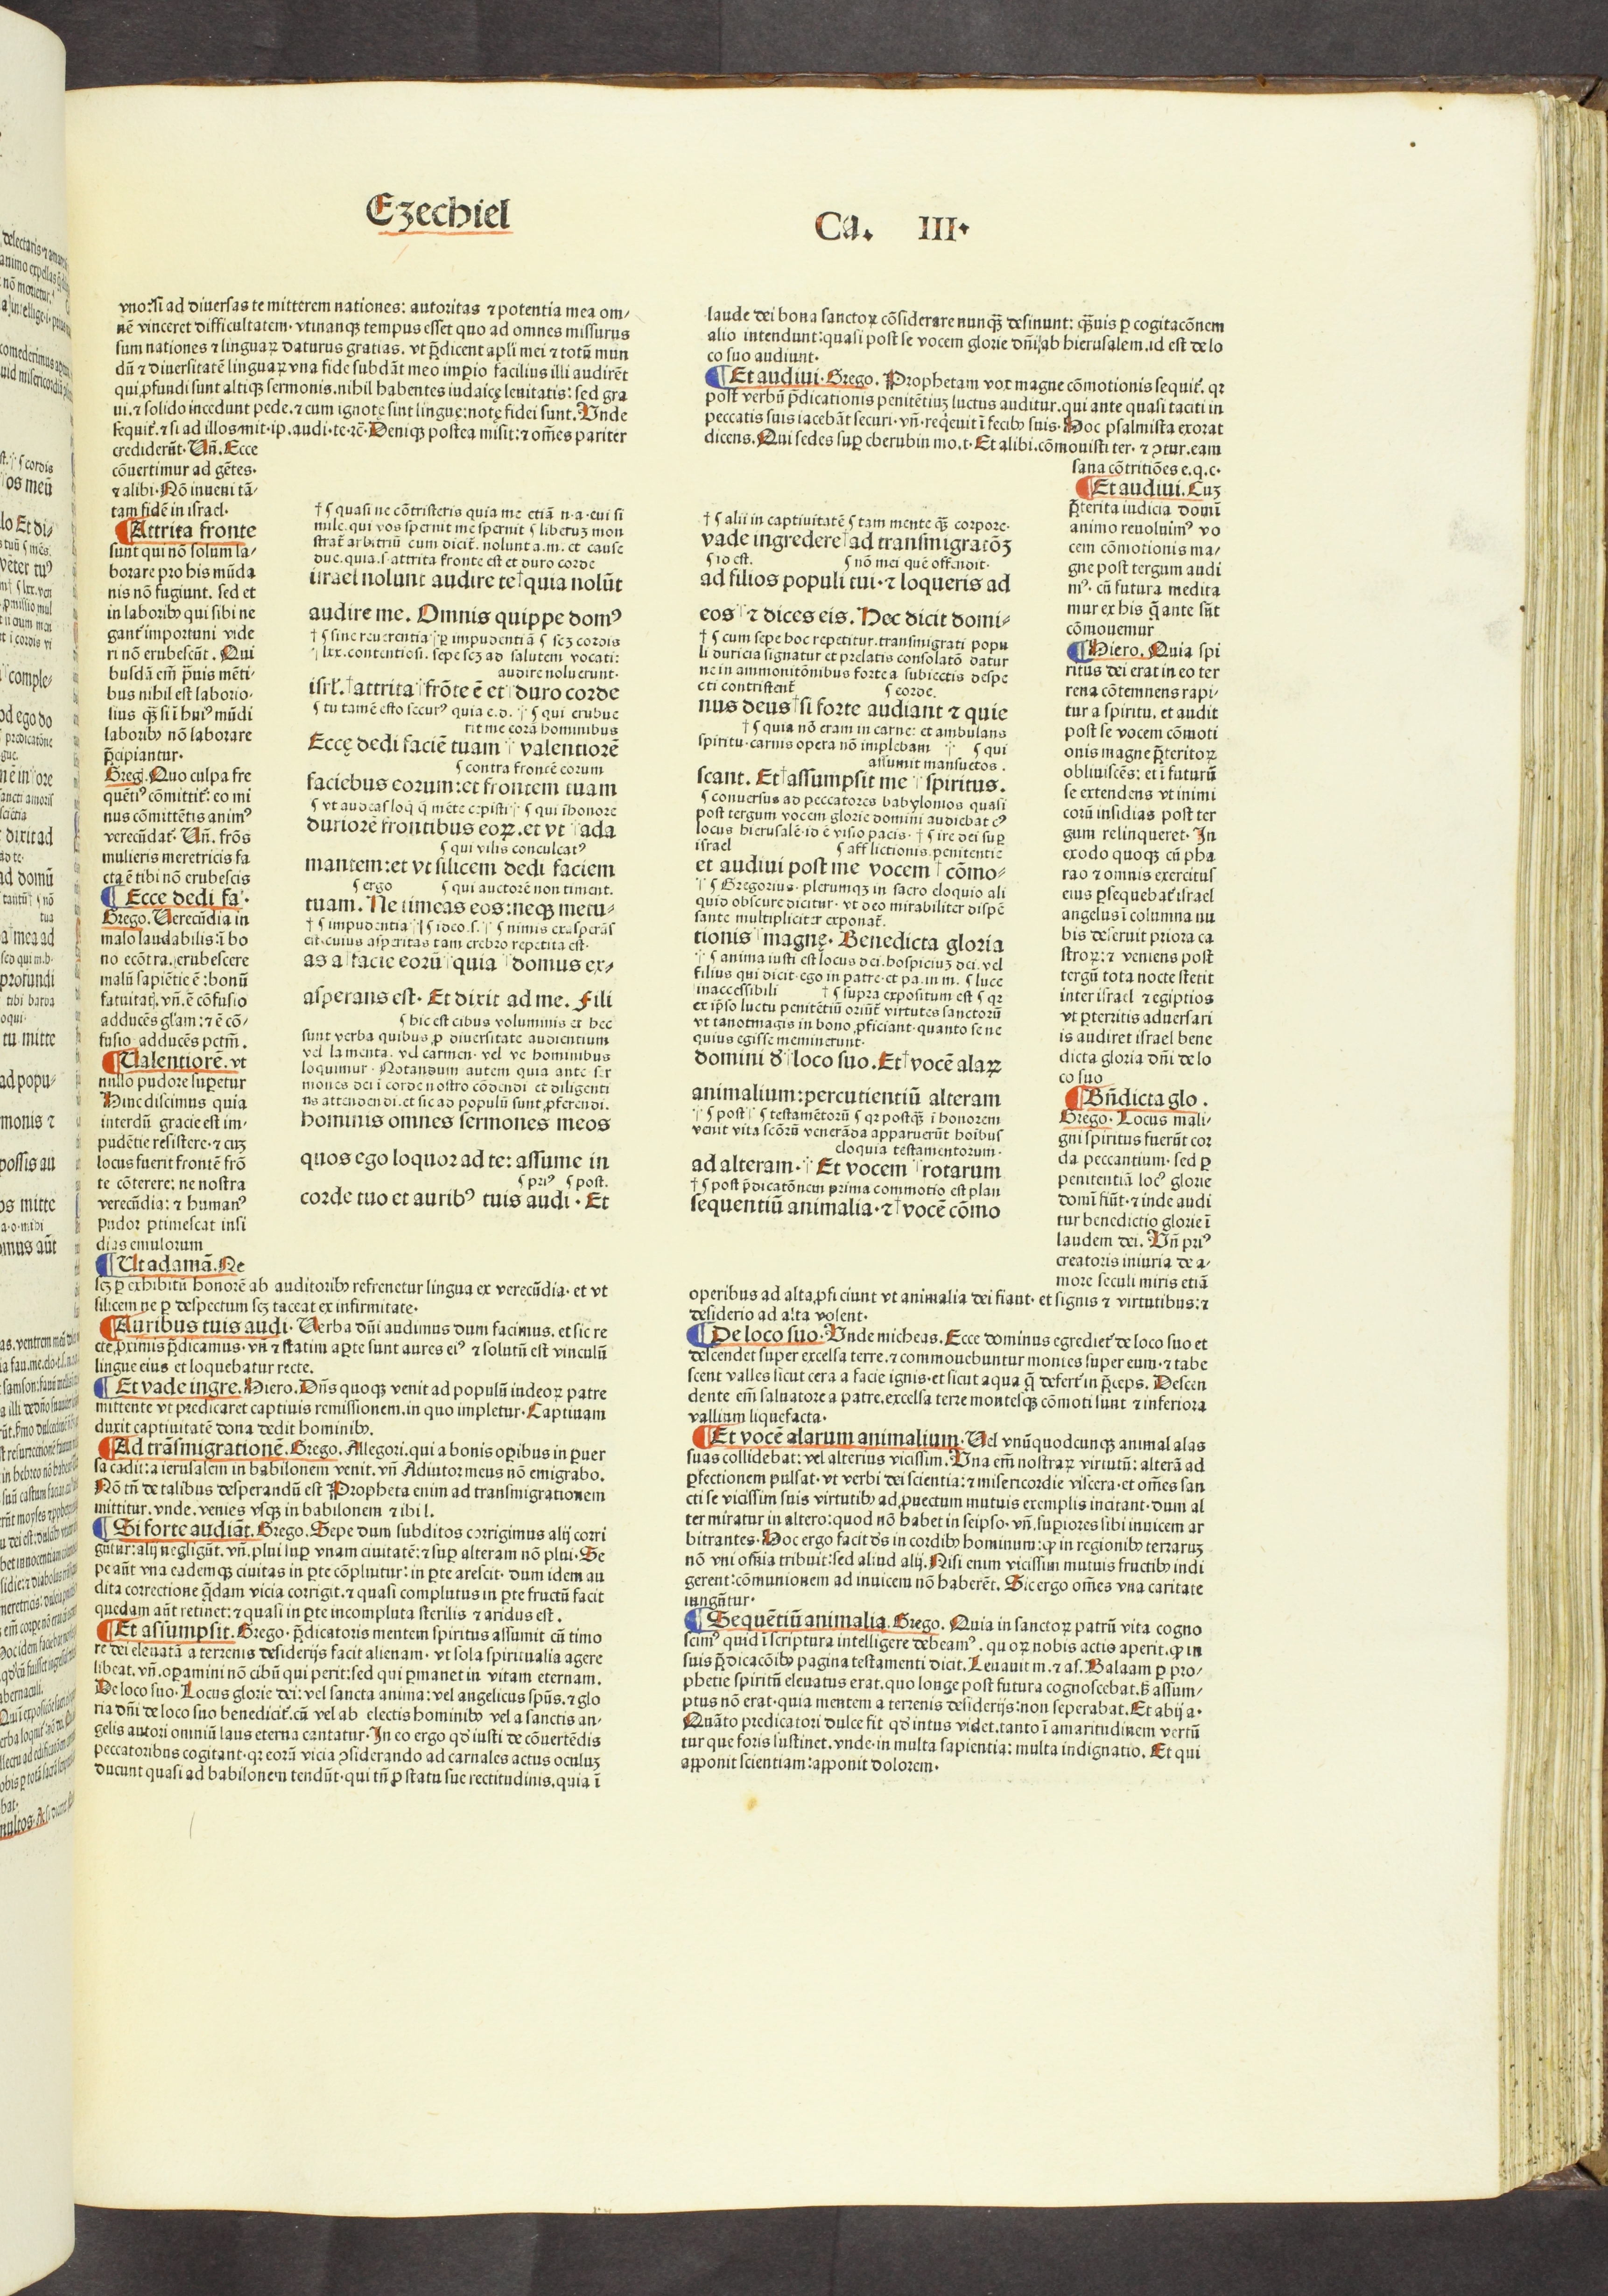 Ezechiel
Ca. III.
vno: si ad diuersas te mitterem nationes: autoritas ⁊ potentia mea om-
nē vinceret difficultatem. vtinanqꝫ tempus esset quo ad omnes missurus
sum nationes ⁊ linguaꝝ daturus gratias. vt p̄dicent apl̄i mei ⁊ totū mun
dū ⁊ diuersitatē linguaꝝ vna fide subdāt meo imp̱io facilius illi audirēt
qui ꝓfundi sunt altiqꝫ sermonis. nihil habentes iudaicę leuitatis: sed gra
ui. ⁊ solido incedunt pede. ⁊ cum ignotę sint linguę: notę fidei sunt. Unde
sequit᷑. ⁊ si ad illos mit. ip. audi. te. ⁊c̄. Deniqꝫ postea misit: ⁊ om̄es pariter
crediderūt. Un̄. Ecce
cōuertimur ad gētes.
⁊ alibi. Nō inueni tā-
tam fidē in israel.
Attrita fronte
sunt qui nō solum la-
borare pro his mūda
nis nō fugiunt. sed et
in laboribꝰ qui sibi ne
gant᷑ importuni vide
ri nō erubescūt. Qui
busdā em̄ p̄uis mēti-
bus nihil est laborio-
sius qꝫ̄ si ī huiꝰ mūdi
laboribꝰ nō laborare
p̄cipiantur.
Greg. Quo culpa fre
quētiꝰ cōmittit᷑: eo mi
nus cōmittētis animꝰ
verecūdat᷑. Un̄. frōs
mulieris meretricis fa
cta ē tibi nō erubescis
Ecce dedi fa.
Grego. Verecūdia in
malo laudabilis: ī bo
no ecōtra. erubescere
malū sapiētie ē: bonū
fatuitatꝭ. vn̄. ē cōfusio
adducēs gl̄am: ⁊ ē cō-
fusio adducēs pctm̄.
Ualentiorē. vt
nullo pudore sup̱etur
Hinc discimus quia
interdū gracie est im-
pudētie resistere. ⁊ cuꝫ
locus fuerit frontē frō
te cōterere: ne nostra
verecūdia: ⁊ humanꝰ
pudor p̱timescat insi
dias emulorum
Ut adamā. Ne
sꝫ p̱ exhibitū honorē ab auditoribꝰ refrenetur lingua ex verecūdia. et vt
silicem ne p̱ despectum sꝫ taceat ex infirmitate.
Auribus tuis audi. Verba dn̄i audimus dum facimus. et sic re
cte ꝓximis p̄dicamus. vn̄ ⁊ statim ap̱te sunt aures eiꝰ ⁊ solutū est vinculū
lingue eius et loquebatur recte.
Et vade ingre. Hiero. Dn̄s quoqꝫ venit ad populū iudeoꝝ patre
mittente vt predicaret captiuis remissionem. in quo impletur. Captiuam
duxit captiuitatē dona dedit hominibꝰ.
Ad trāsmigrationē. Grego. Allegori. qui a bonis op̱ibus in p̱uer
sa cadit: a ierusalem in babilonem venit. vn̄ Adiutor meus nō emigrabo.
Nō tn̄ de talibus desperandū est Propheta enim ad transmigrationem
mittitur. vnde. venies vsqꝫ in babilonem ⁊ ibi l.
Si forte audiāt. Grego. Sepe dum subditos corrigimus alij corri
gūtur: alij negligūt. vn̄. plui sup̱ vnam ciuitatē: ⁊ sup̱ alteram nō plui. Se
pe aūt vna eademqꝫ ciuitas in p̱te cōpluitur: in p̱te arescit. dum idem au
dita correctione q̄dam vicia corrigit. ⁊ quasi complutus in p̱te fructū facit
quedam aūt retinet: ⁊ quasi in p̱te incompluta sterilis ⁊ aridus est.
Et assumpsit. Grego. p̄dicatoris mentem spiritus assumit cū timo
re dei eleuatā a terrenis desiderijs facit alienam. vt sola spiritualia agere
libeat. vn̄. op̱amini nō cibū qui perit: sed qui p̱manet in vitam eternam.
De loco suo. Locus glorie dei: vel sancta anima: vel angelicus spūs. ⁊ glo
ria dn̄i de loco suo benedicit᷑. cū vel ab electis hominibꝰ vel a sanctis an-
gelis autori omniū laus eterna cantatur. In eo ergo qd̓ iusti de cōuertēdis
peccatoribus cogitant. qꝛ eorū vicia ↄsiderando ad carnales actus oculuꝫ
ducunt quasi ad babilonem tendūt. qui tn̄ ꝓ statu sue rectitudinis. quia ī
† ⸿ quasi ne cōtristeris quia me etiā n. a. cui si
mile. qui vos spernit me spernit ⸿ liberuꝫ mon
strat᷑ arbitriū cum dicit᷑. nolunt a. m. et cause
due. quia. s. attrita fronte est et duro corde
israel nolunt audire te quia nolūt
audire me. Omnis quippe domꝰ
† ⸿ sine reuerentia p̱ impudentiā ⸿ seꝫ cordis
lxx. contentiosi. sepe seꝫ ad salutem vocati:
audire noluerunt.
isrl̄. †attrita frōte ē et duro corde
⸿ tu tamē esto securꝰ quia e. d. ⸿ qui erubue
rit me corā hominibus
Eccę dedi faciē tuam valentiorē
⸿ contra frontē eorum
faciebus eorum: et frontem tuam
⸿ vt audeas loq̄ q̄ mēte cepisti ⸿ qui īhonore
duriorē frontibus eoꝝ. et vt ada
⸿ qui vilis conculcatꝰ
mantem: et vt silicem dedi faciem
⸿ ergo ⸿ qui auctorē non timent.
tuam. Ne timeas eos: neqꝫ metu-
† ⸿ impudentia ⸿ ideo. s. ⸿ nimis exasperās
cit. cuius asperitas tam crebro repetita est.
as a facie eorū quia domus ex-
asperans est. Et dixit ad me. Fili
⸿ hic est cibus voluminis et hec
sunt verba quibus ꝓ diuersitate audientium
vel lamenta. vel carmen. vel ve hominibus
loquimur. Notandum autem quia ante ser
mones dei ī corde nostro cōdendi et diligenti
us attendendi. et sic ad populū sunt ꝓferendi.
hominis omnes sermones meos
quos ego loquor ad te: assume in
⸿ priꝰ ⸿ post.
corde tuo et auribꝰ tuis audi. Et
laude dei bona sanctoꝝ cōsiderare nunqꝫ̄ desinunt: qꝫ̄uis p̱ cogitacōnem
alio intendunt: quasi post se vocem glorie dn̄i ab hierusalem. id est de lo
co suo audiunt.
Et audiui. Grego. Prophetam vox magne cōmotionis sequit᷑. qꝛ
post verbū p̄dicationis penitētiuꝫ luctus auditur. qui ante quasi taciti in
peccatis suis iacebāt securi. vn̄. reqͥeuit ī fecibꝰ suis. Hoc psalmista exorat
dicens. Qui sedes sup̱ cherubin mo. t. Et alibi. cōmouisti ter. ⁊ ↄtur. eam
sana cōtritiōes e. q. c.
Et audiui. Cuꝫ
p̄terita iudicia domī
animo reuoluimꝰ vo
cem cōmotionis ma-
gne post tergum audi
mꝰ. cū futura medita
mur ex his q̄ ante sūt
cōmouemur
Hiero. Quia spi
ritus dei erat in eo ter
rena cōtemnens rapi-
tur a spiritu. et audit
post se vocem cōmoti
onis magne p̄teritoꝝ
obliuiscēs: et ī futurū
se extendens vt inimi
corū insidias post ter
gum relinqueret. In
exodo quoqꝫ cū pha
rao ⁊ omnis exercitus
eius p̱sequebat᷑ israel
angelus ī columna nu
bis deseruit priora ca
stroꝝ: ⁊ veniens post
tergū tota nocte stetit
inter israel ⁊ egiptios
vt p̱territis aduersari
is audiret israel bene
dicta gloria dn̄i de lo
co suo
Bn̄dicta glo.
Grego. Locus mali-
gni spiritus fuerūt cor
da peccantium. sed p̱
penitentiā locꝰ glorie
domī fiūt. ⁊ inde audi
tur benedictio glorie ī
laudem dei. Un̄ priꝰ
creatoris iniuria de a-
more seculi miris etiā
operibus ad alta ꝓficiunt vt animalia dei fiant. et signis ⁊ virtutibus: ⁊
desiderio ad alta volent.
De loco suo. Unde micheas. Ecce dominus egrediet᷑ de loco suo et
descendet super excelsa terre. ⁊ commouebuntur montes super eum. ⁊ tabe
scent valles sicut cera a facie ignis. et sicut aqua q̄ defert᷑ in p̄ceps. Descen
dente em̄ saluatore a patre. excelsa terre montesqꝫ cōmoti sunt ⁊ inferiora
vallium liquefacta.
Et vocē alarum animalium. Vel vnūquodcunqꝫ animal alas
suas collidebat: vel alterius vicissim. Una em̄ nostraꝝ virtutū: alterā ad
p̱fectionem pulsat. vt verbi dei scientia: ⁊ misericordie viscera. et om̄es san
cti se vicissim suis virtutibꝰ ad ꝓuectum mutuis exemplis incitant. dum al
ter miratur in altero: quod nō habet in seipso. vn̄. sup̱iores sibi inuicem ar
bitrantes. Hoc ergo facit d̄s in cordibꝰ hominum: qd̓ in regionibꝰ terraruꝫ
nō vni om̄ia tribuit: sed aliud alij. Nisi enim vicissim mutuis fructibꝰ indi
gerent: cōmunionem ad inuicem nō haberēt. Sic ergo om̄es vna caritate
iungūtur.
Sequētiū animalia. Grego. Quia in sanctoꝝ patrū vita cogno
scimꝰ quid ī scriptura intelligere debeamꝰ. quoꝝ nobis actis aperit. qd̓ in
suis p̄dicacōibꝰ pagina testamenti dicit. Leuauit m. ⁊ as. Balaam p̱ pro-
phetie spiritū eleuatus erat. quo longe post futura cognoscebat. sꝫ assum-
ptus nō erat. quia mentem a terrenis desiderijs: non seperabat. Et abij a.
Quāto predicatori dulce fit qd̓ intus videt. tanto ī amaritudinem vertū
tur que foris sustinet. vnde. in multa sapientia: multa indignatio. Et qui
apponit scientiam: apponit dolorem.
† ⸿ alii in captiuitatē ⸿ tam mente qꝫ̄ corpore.
vade ingredere †ad transmigratōꝫ
⸿ id est. ⸿ nō mei que offendit.
ad filios populi tui. ⁊ loqueris ad
eos ⁊ dices eis. Hec dicit domi-
† ⸿ cum sepe hoc repetitur. transmigrati popu
li duricia signatur et prelatis consolatō datur
ne in ammonitōnibus forte a subiectis despe
cti contristent᷑ ⸿ corde.
nus deus †si forte audiant ⁊ quie
† ⸿ quia nō eram in carne: et ambulans
spiritu. carnis opera nō implebam ⸿ qui
assumit mansuetos.
scant. Et †assumpsit me spiritus.
⸿ conuersus ad peccatores babylonios quasi
post tergum vocem glorie domini audiebat eꝰ
locus hierusalē. id ē visio pacis. † ⸿ ire dei sup̱
israel ⸿ afflictionis penitentie
et audiui post me vocem cōmo-
⸿ Gregorius. plerumqꝫ in sacro eloquio ali
quid obscure dicitur. vt deo mirabiliter dispē
sante multipliciter exponat᷑.
tionis magnę. Benedicta gloria
⸿ anima iusti est locus dei. hospiciuꝫ dei. vel
filius qui dicit. ego in patre. et pa. in m. ⸿ luce
inaccessibili † ⸿ supra expositum est ⸿ qꝛ
ex ip̄so luctu penitētiū oriūt᷑ virtutes sanctorū
vt tantomagis in bono ꝓficiant. quanto se ne
quius egisse meminerunt.
domini d̓ loco suo. Et †vocē alaꝝ
animalium: percutientiū alteram
⸿ post ⸿ testamētorū ⸿ qꝛ postqꝫ̄ ī honorem
venit vita scōrū venerāda apparuerūt hoibus
eloquia testamentorum.
ad alteram. Et vocem rotarum
† ⸿ post p̄dicatōnem prima commotio est plan
sequentiū animalia. ⁊ †vocē cōmo